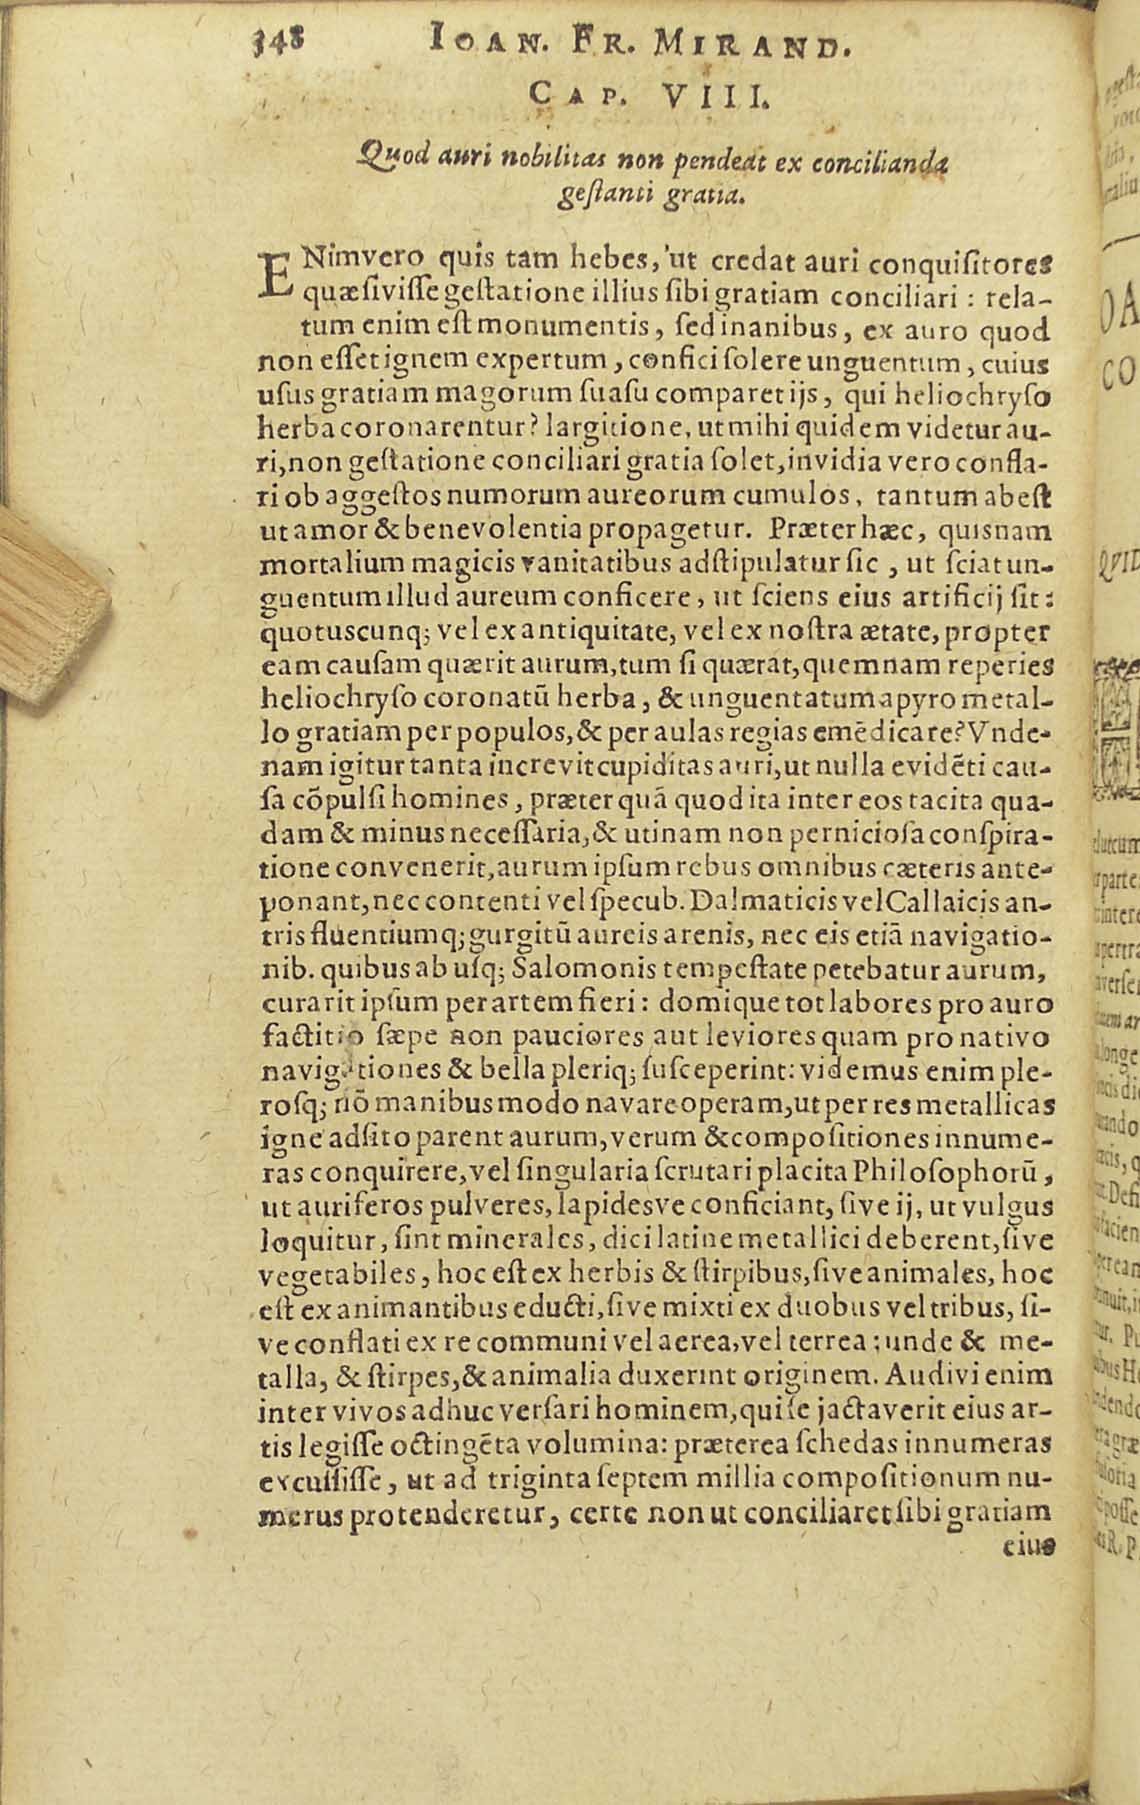 348 IOAN. FR. MIRAND.
CAP. VIII.
Quod auri nobilitas non pendeat ex concilianda
geſtanti gratia.
ENimvero quis tam hebes, ut credat auri conquiſitores
quæſiviſſe geſtatione illius ſibi gratiam conciliari : rela-
tum enim eſt monumentis, ſed inanibus, ex auro quod
non eſſet ignem expertum, confici ſolere unguentum, cuius
uſus gratiam magorum ſuaſu comparet ijs, qui heliochryſo
herba coronarentur? largitione, ut mihi quidem videtur au-
ri, non geſtatione conciliari gratia ſolet, invidia vero confla-
ri ob aggeſtos numorum aureorum cumulos, tantum abeſt
ut amor & benevolentia propagetur. Præter hæc, quisnam
mortalium magicis vanitatibus adſtipulatur ſic, ut ſciat un-
guentum illud aureum conficere, ut ſciens eius artificij ſit:
quotuscunq; vel ex antiquitate, vel ex noſtra ætate, propter
eam cauſam quærit aurum, tum ſi quærat, quemnam reperies
heliochryſo coronatū herba, & unguentatum apyro metal-
lo gratiam per populos, & per aulas regias emēdicare? Vnde-
nam igitur tanta increvit cupiditas auri, ut nulla evidēti cau-
ſa cōpulſi homines, præterquā quod ita inter eos tacita qua-
dam & minus neceſſaria, & utinam non pernicioſa conſpira-
tione convenerit, aurum ipſum rebus omnibus cæteris ante-
ponant, nec contenti vel ſpecub. Dalmaticis vel Callaicis an-
tris fluentiumq; gurgitū aureis arenis, nec eis etiā navigatio-
nib. quibus ab uſq; Salomonis tempeſtate petebatur aurum,
curarit ipſum per artem fieri : domique tot labores pro auro
factitio ſæpe non pauciores aut leviores quam pro nativo
navigationes & bella pleriq; ſuſceperint: videmus enim ple-
roſq; nō manibus modo navare operam, ut per res metallicas
igne adſito parent aurum, verum & compoſitiones innume-
ras conquirere, vel ſingularia ſcrutari placita Philoſophorū,
ut auriferos pulveres, lapidesve conficiant, ſive ij, ut vulgus
loquitur, ſint minerales, dici latine metallici deberent, ſive
vegetabiles, hoc eſt ex herbis & ſtirpibus, ſive animales, hoc
eſt ex animantibus educti, ſive mixti ex duobus vel tribus, ſi-
ve conflati ex re communi vel aerea, vel terrea ; unde & me-
talla, & ſtirpes, & animalia duxerint originem. Audivi enim
inter vivos adhuc verſari hominem, qui ſe jactaverit eius ar-
tis legiſſe octingēta volumina: præterea ſchedas innumeras
excuſſiſſe, ut ad triginta ſeptem millia compoſitionum nu-
merus protenderetur, certe non ut conciliaret ſibi gratiam
eius